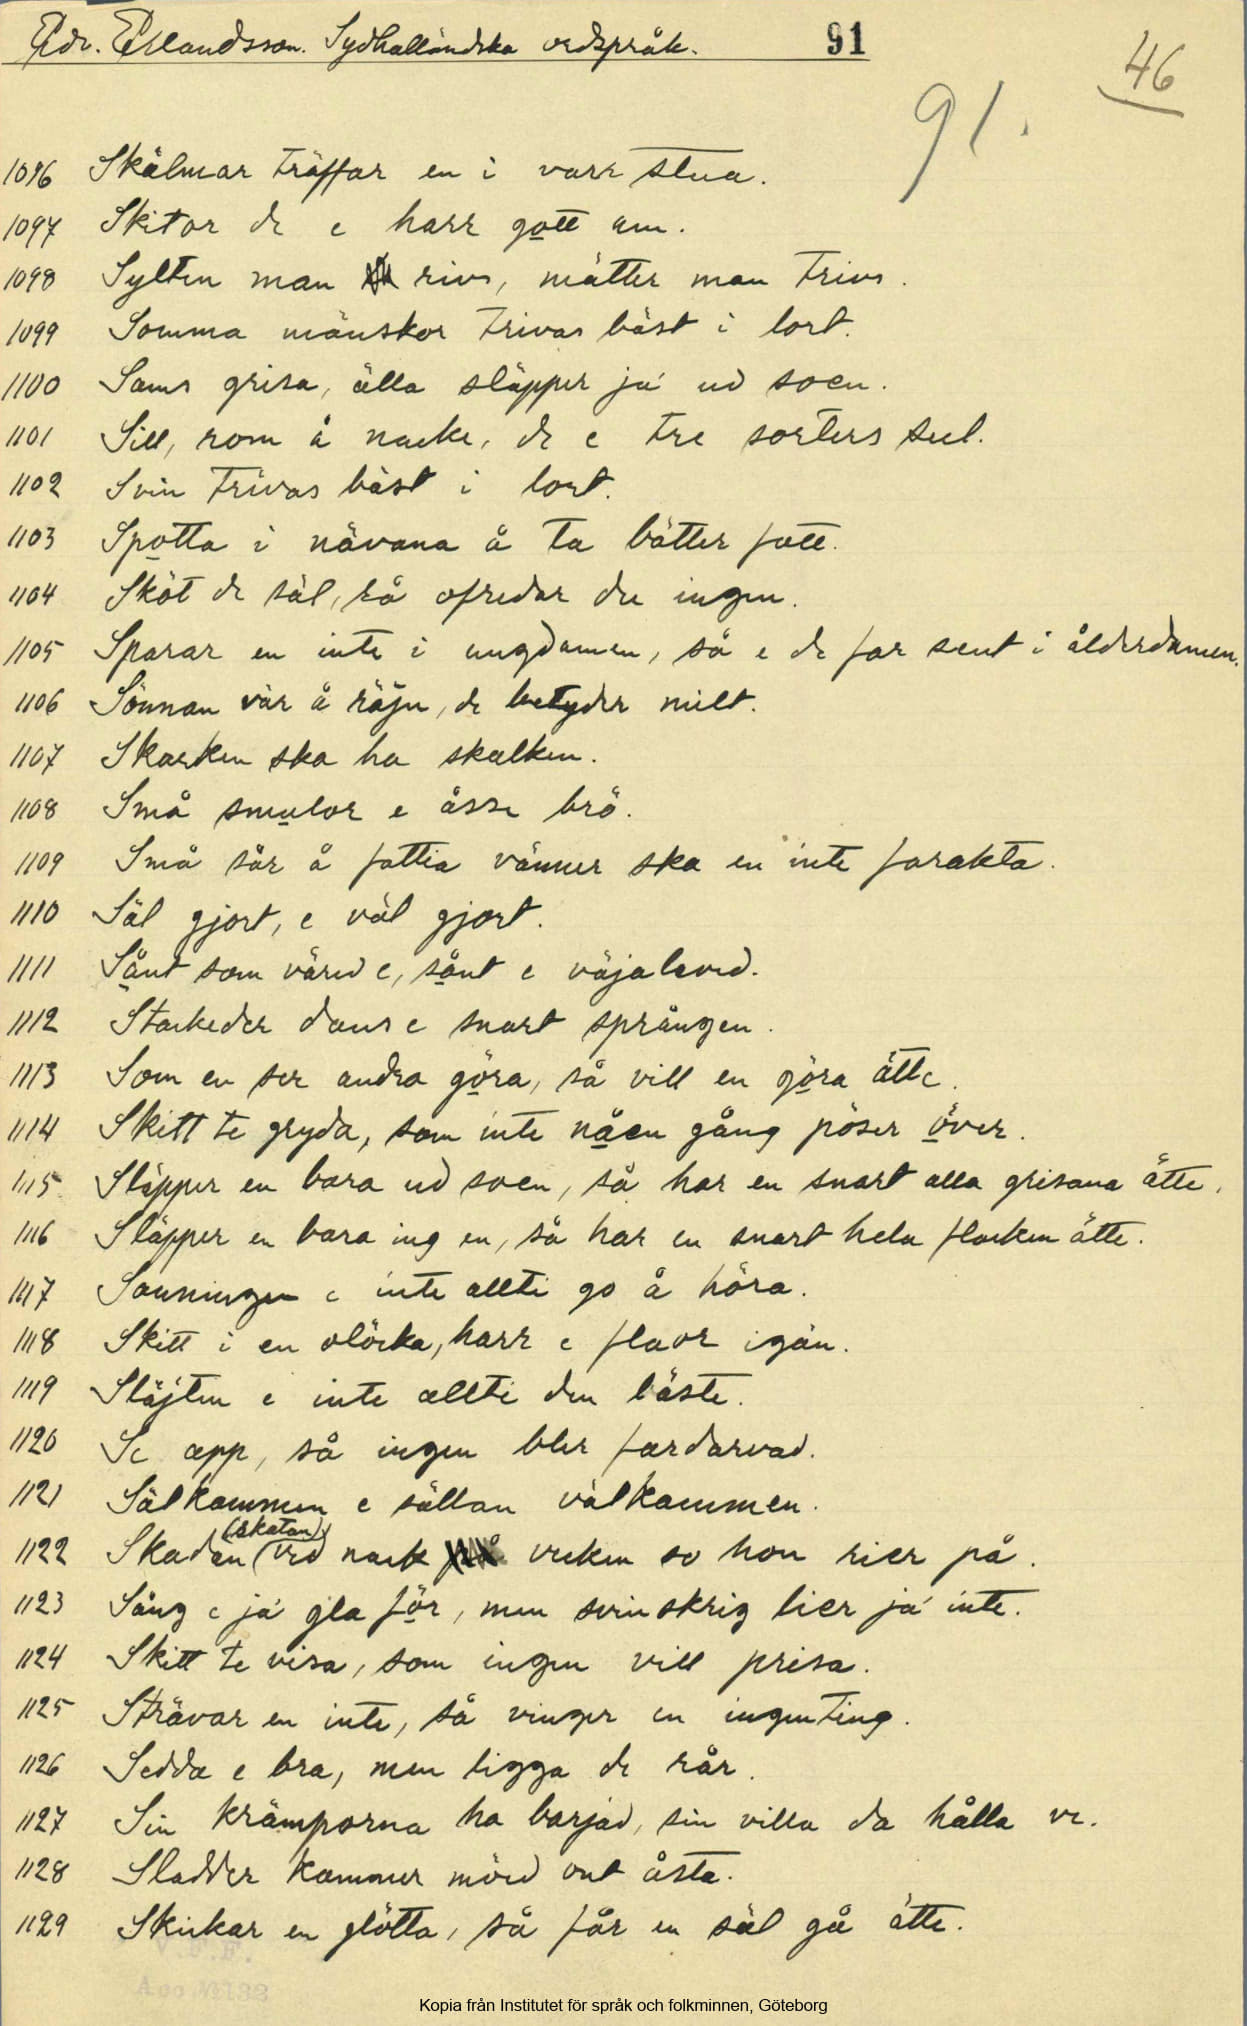 Edv. Erlandsson. Sydhalländska ordspråk. 91
46
91.
1096 Skälmar träffar en i varr stua.
1097 Skitor de e harr gott um.
1098 Sylten man rivs, mätter man trivs.
1099 Somma mänskor trivas bäst i lort.
1100 Sams grisa, älla släpper ja' ud soen.
1101 Sill, rom å nacke, de e tre sorters sul.
1102 Svin trivas bäst i lort.
1103 Spotta i nävana å ta bätter fatt.
1104 Sköt de säl, så ofredar du ingen.
1105 Sparar en inte i ungdamen, så e de far sent i ålderdamen.
1106 Sönnan vär å räjn, de betyder milt.
1107 Skarken ska ha skalken.
1108 Små smulor e åsse brö.
1109 Små sår å fattia vänner ska en inte farakta.
1110 Säl gjort, e väl gjort.
1111 Sånt som väred e, sånt e väjalaved.
1112 Stackeder dans e snart sprången.
1113 Som en ser andra göra, så vill en göra ätte.
1114 Skitt te gryda, som inte nåen gång pöser över.
1115 Släpper en bara ud soen, så har en snart alla grisana ätte.
1116 Släpper en bara ing en, så har en snart hela flacken ätte.
1117 Sanningen e inte allti go å höra.
1118 Skitt i en olöcka, harr e flaor igän.
1119 Släjten e inte allti den bäste.
1120 Se app, så ingen bler fardarvad.
1121 Sälkammen e sällan välkammen.
1122 Skadan (skatan) ved nack vecken so hon rier på.
1123 Sång e ja' gla för, men svinskrig lier ja' inte.
1124 Skitt te visa, som ingen vill prisa.
1125 Strävar en inte, så vinger en ingenting.
1126 Sedda e bra, men ligga de rår.
1127 Sin krämporna ha barjad, sin villa da hålla ve.
1128 Sladder kammer möed ont åsta.
1129 Skickar en glötta, så får en säl gå ätte.
Kopia från Institutet för språk och folkminnen, Göteborg